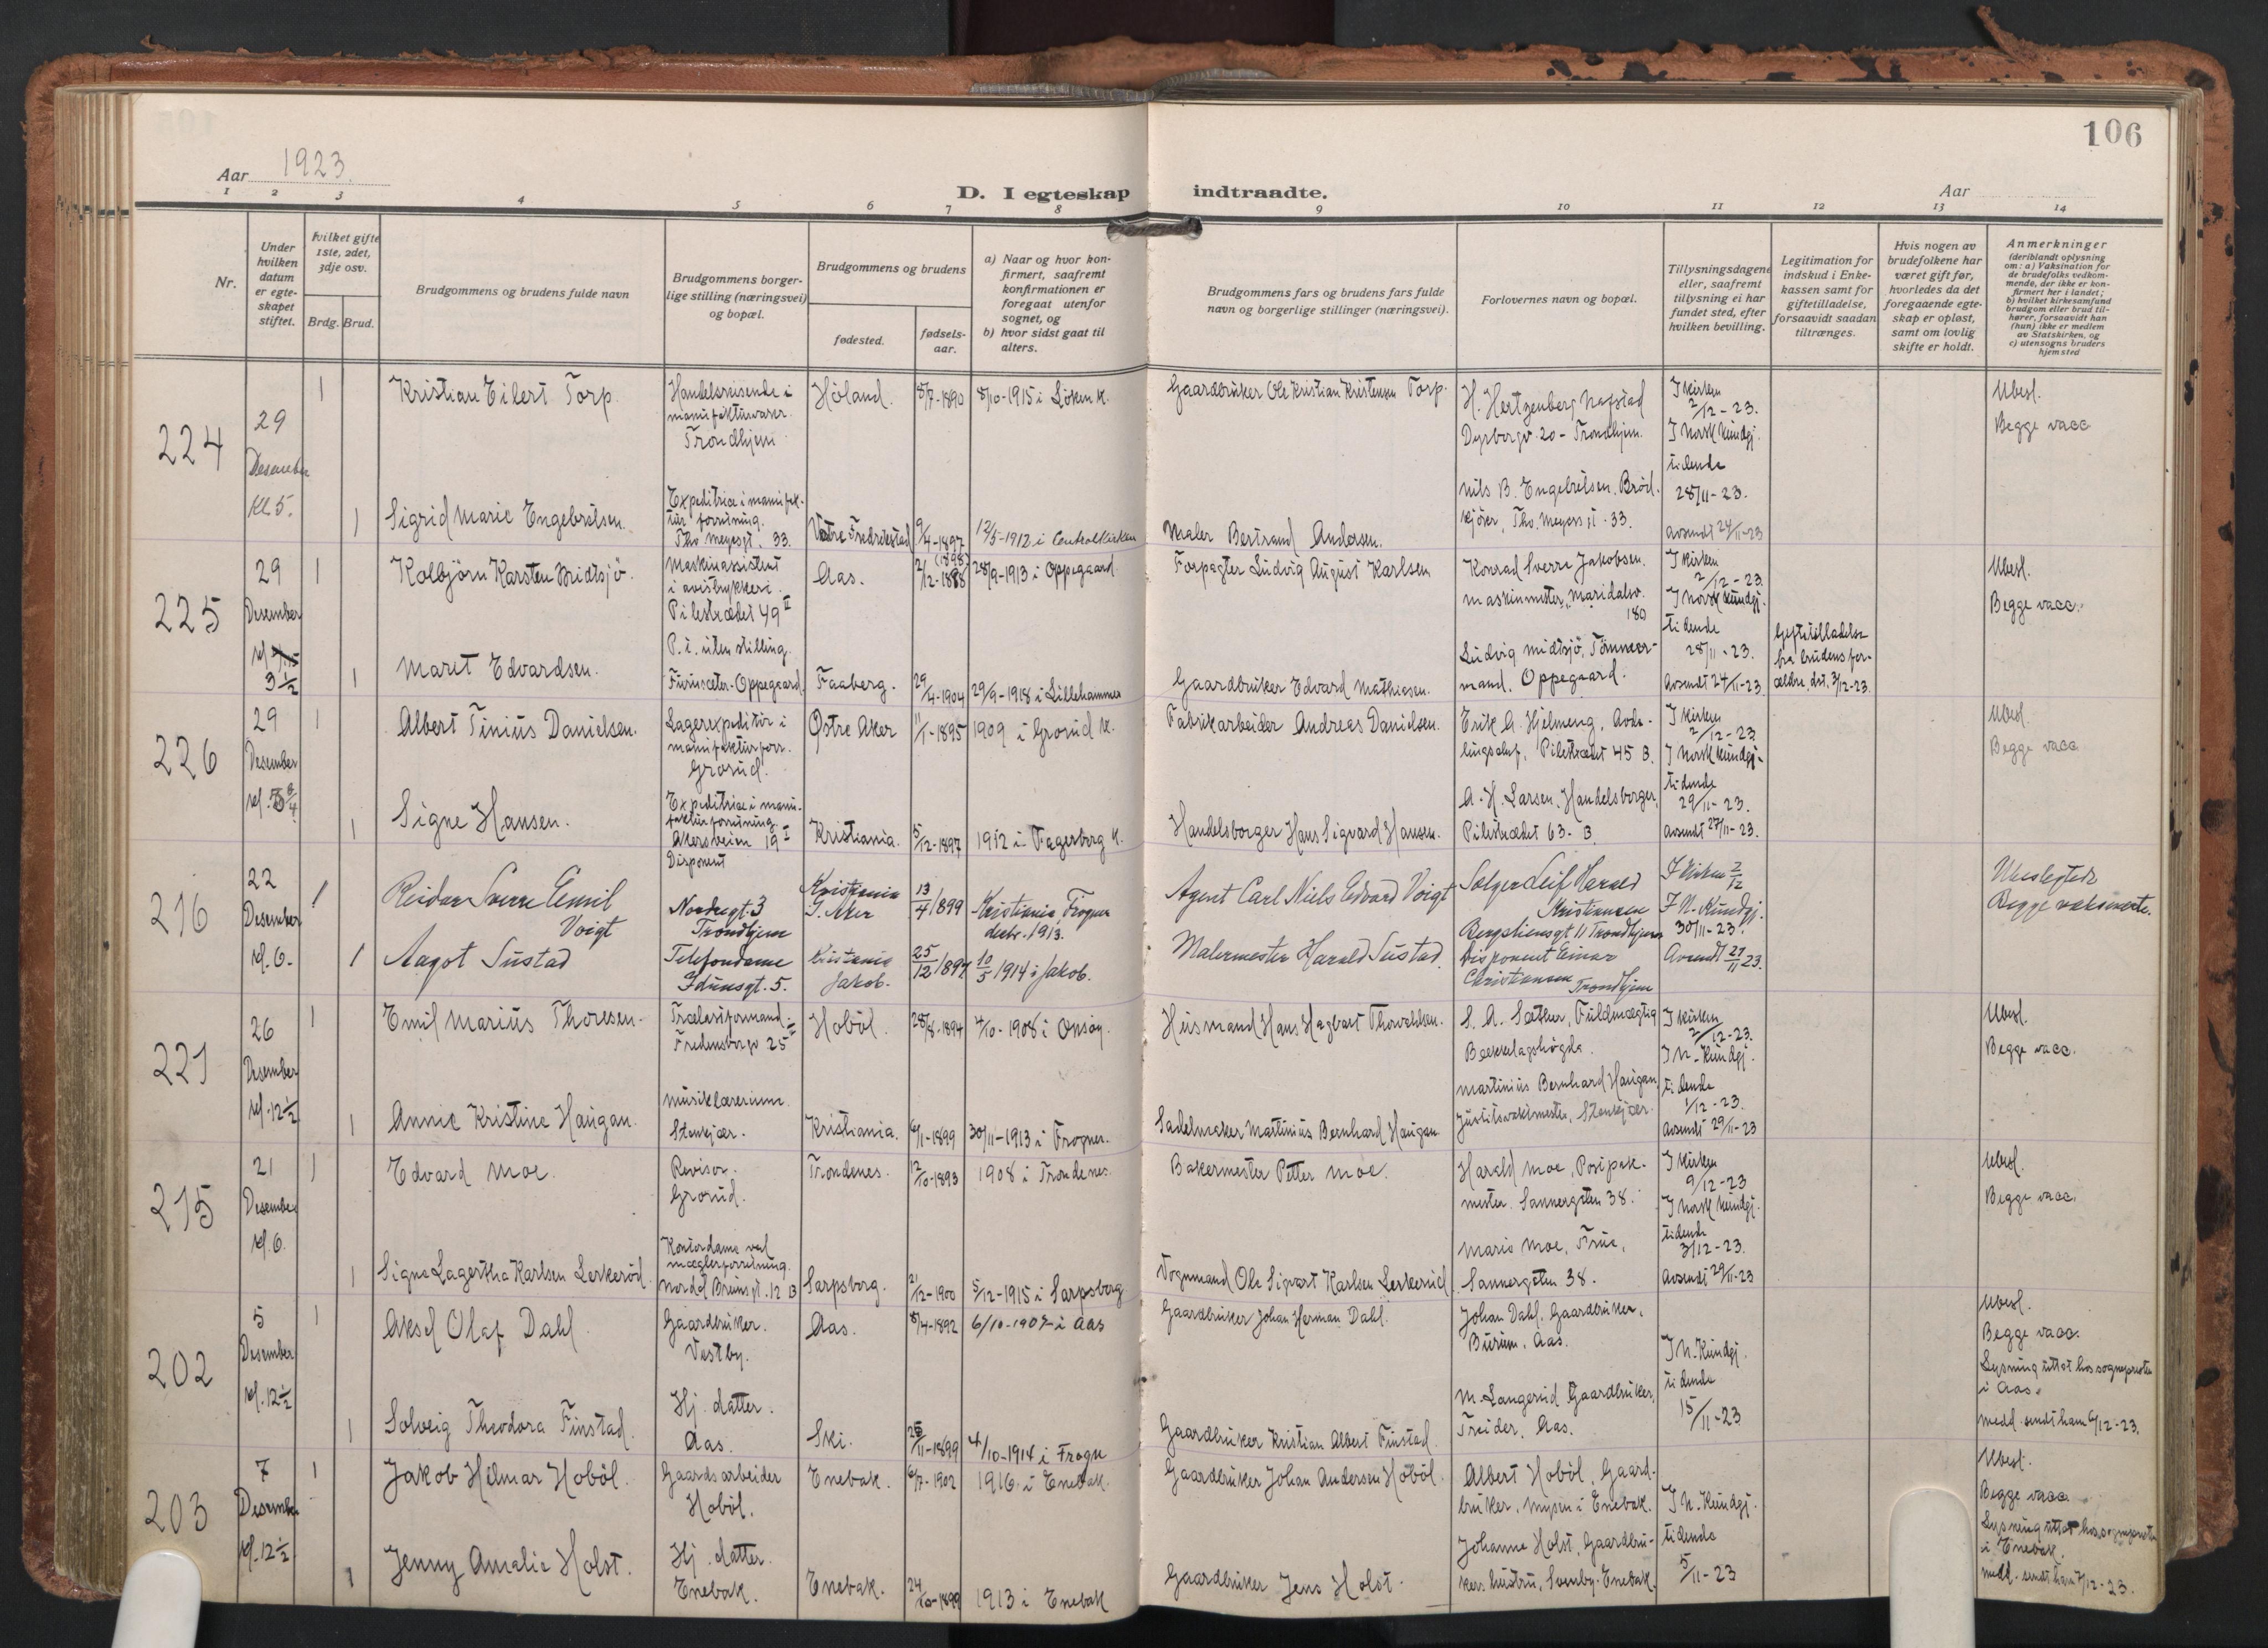 106
Aar 1923.
D. I egteskap indtraadte.
Aar
1 2 3 4 5 6 7 8 9 10 11 12 13 14
Nr.
Under hvilken datum er egteskapet stiftet.
Hvilket gifte 1ste, 2det, 3dje osv.
Brdg. Brud.
Brudgommens og brudens fulde navn
Brudgommens borgerlige stilling (næringsvei) og bopæl.
Brudgommens og brudens
fødested.
fødselsaar.
a) Naar og hvor konfirmert, saafremt konfirmationen er foregaat utenfor sognet, og
b) hvor sidst gaat til alters.
Brudgommens fars og brudens fars fulde navn og borgerlige stillinger (næringsvei).
Forlovernes navn og bopæl.
Tillysningsdagene eller, saafremt tillysning ei har fundet sted, efter hvilken bevilling.
Legitimation for indskud i Enkekassen samt for giftetilladelse, forsaavidt saadan tiltrænges.
Hvis nogen av brudefolkene har været gift før, hvorledes da det foregaaende egteskap er opløst, samt om lovlig skifte er holdt.
Anmerkninger (deriblandt oplysning om: a) Vaksination for de brudefolks vedkommende, der ikke er konfirmert her i landet; b) hvilket kirkesamfund brudgom eller brud tilhører, forsaavidt han (hun) ikke er medlem av Statskirken, og c) utensogns bruders hjemsted
224
29 Desember Kl. 5.
1
Kristian Eilert Torp.
Handelsreisende i manufakturvarer. Trondhjem.
Høland.
8/7-1890
8/10-1915 i Löken k.
Gaardbruker Ole Kristian Kristensen Torp.
H. Hertzenberg Nafstad
Dyrborgv. 20 - Trondhjem.
I kirken 2/12-23.
I Norsk Kundgj. tidende 28/11-23.
Avsendt 24/11-23
Ubesl.
Begge vacc
1
Sigrid Marie Engebretsen.
Expeditrice i manufaktur forretning. Tho Meyesgt. 33.
Vestre Fredrikstad
9/4-1897
12/5-1912 i Centralkirken
Maler Bertrand Andersen.
Nils B. Engebretsen. Brød-
kjörer, Tho. Meyers gt. 33.
225
29 Desember kl. 3 1/2
1
Kolbjörn Karsten Midtsjö.
Maskinassistent i avistrykkeri. Pilestrædet 49 II
Aas.
2/12-1898 (1898)
28/9-1913 i Oppegaard.
Forpagter Ludvig August Karlsen
Konrad Sverre Jakobsen.
maskinmester, Maridalsv. 180
I kirken 2/12-23.
I Norsk Kundgj. tidende 28/11-23.
Avsendt 24/11-23
Giftetilladelse fra brudens forældre, dat. 3/12-23.
Ubesl.
Begge vacc.
1
Maret Edvardsen.
P. t. uten stilling. Furusæter-Oppegaard.
Faaberg.
29/4-1904
29/9-1918 i Lillehammer
Gaardbruker Edvard Mathiesen.
Ludvig Midtsjö, Tömmer-
mand. Oppegaard.
226
29 Desember kl. 5 3/4
1
Albert Tinius Danielsen.
Lagerexpeditör i manufakturforr. Grorud.
Østre Aker
11/1-1895
1909 i Grorud k.
Fabrikarbeider Andreas Danielsen.
Erik A. Hjelmeng, Avde-
lingschef, Pilestrædet 45 B.
I kirken 2/12-23
I Norsk Kundgj. tidende 29/11-23.
Avsendt 27/11-23.
Ubesl.
Begge vacc
1
Signe Hansen.
Expeditrice i manufaktur forretning. Akersveien 19 I
Kristiania.
5/12-1897
1912 i Fagerborg k.
Handelsborger Hans Sigvard Hansen.
A. H. Larsen. Handelsborger,
Pilestrædet 63-B
216
22 Desember kl. 6.
1
Reidar Sverre Emil Voigt
Disponent Nordregt. 3 Trondhjem
Kristiania G. Aker
13/4 1899
Kristiania Frogner decbr. 1913.
Agent Carl Niels Edvard Voigt
Selger Leif Harald Kristiansen
Bergstiensgt 11 Trondhjem
I Kirken 2/12
I N. Kundgj. 30/11-23.
Avsendt 27/11 23.
Ubeslegtede
Begge vaksinerte.
1
Aagot Sustad
Telefondame Idunsgt. 5.
Kristiania Jakob.
25/12 1897
10/5 1914 i Jakob.
Malermester Harald Sustad.
Disponent Einar Christiansen Trondhjem
221
26 Desember kl. 12 1/2
1
Emil Marius Thoresen.
Trælastformand. Fredensborgv 25 II
Hoböl.
28/8-1894
4/10-1908 i Onsøy.
Husmand Hans Hagbart Thorvaldsen.
S. A. Sæther, Fuldmægtig
Bækkelagshögda.
I kirken 2/12-23.
I N. Kundgj. tidende 1/12-23.
Avsendt 29/11-23
Ubesl.
Begge vacc.
1
Annie Kristine Haugan.
Musiklærerinne. Stenkjær.
Kristiania.
6/1-1899
30/11-1913 i Frogner.
Sadelmaker Martinius Bernhard Haugan
Martinius Bernhard Haugan,
Justitsvaktmester, Stenkjær.
215
21 Desember kl. 6.
1
Edvard Moe.
Revisor. Grorud.
Trondenes.
12/10-1893
1908 i Trondenes.
Bakermester Petter Moe.
Harald Moe, Postpak-
mester. Sannergaten 38.
I kirken 9/12-23
I Norsk Kundgj. tidende 3/12-23.
Avsendt 29/11-23
Ubesl.
Begge vacc.
1
Signe Lagertha Karlsen Lerkeröd.
Kontordame ved mæglerforretning. Nordal Brunsgt. 12 B
Sarpsborg.
21/12-1900
5/12-1915 i Sarpsborg
Vognmand Ole Sigvart Karlsen Lerkeröd
Marie Moe, Frue,
Sannergaten 38.
202
5 Desember kl. 12 1/2
1
Aksel Olaf Dahl.
Gaardbruker. Vestby.
Aas.
8/4-1892
6/10-1907 i Aas
Gaardbruker Johan Herman Dahl.
Johan Dahl. Gaardbruker,
Burum. Aas.
I N. Kundgj. tidende 15/11-23
Ubesl.
Begge vacc.
Lysning uttat hos sogneprsten i Aas.
Medd. sendt ham 6/12-23.
1
Solveig Theodora Finstad.
Hj. datter. Aas.
Ski.
25/11-1899
4/10-1914 i Frogn
Gaardbruker Kristian Albert Finstad.
M. Langerud Gaardbruker,
Treider, Aas.
203
7 Desember kl. 12 1/2
1
Jakob Hilmar Hoböl.
Gaardsarbeider Hoböl.
Enebak.
6/7-1902
1916 i Enebak.
Gaardbruker Johan Andersen Hoböl.
Albert Hoböl, Gaard-
bruker, Mysen i Enebak.
I N. Kundgj. tidende 5/11-23
Ubesl.
Begge vacc.
Lysning uttat hos sogneprsten i Enebak.
Medd. sendt ham 7/12-23.
1
Jenny Amalie Holst.
Hj. datter. Enebak.
Enebak.
24/10-1899
1913 i Enebak
Gaardbruker Jens Holst.
Johanne Holst, Gaardbru-
kers hustru, Svenby-Enebak.